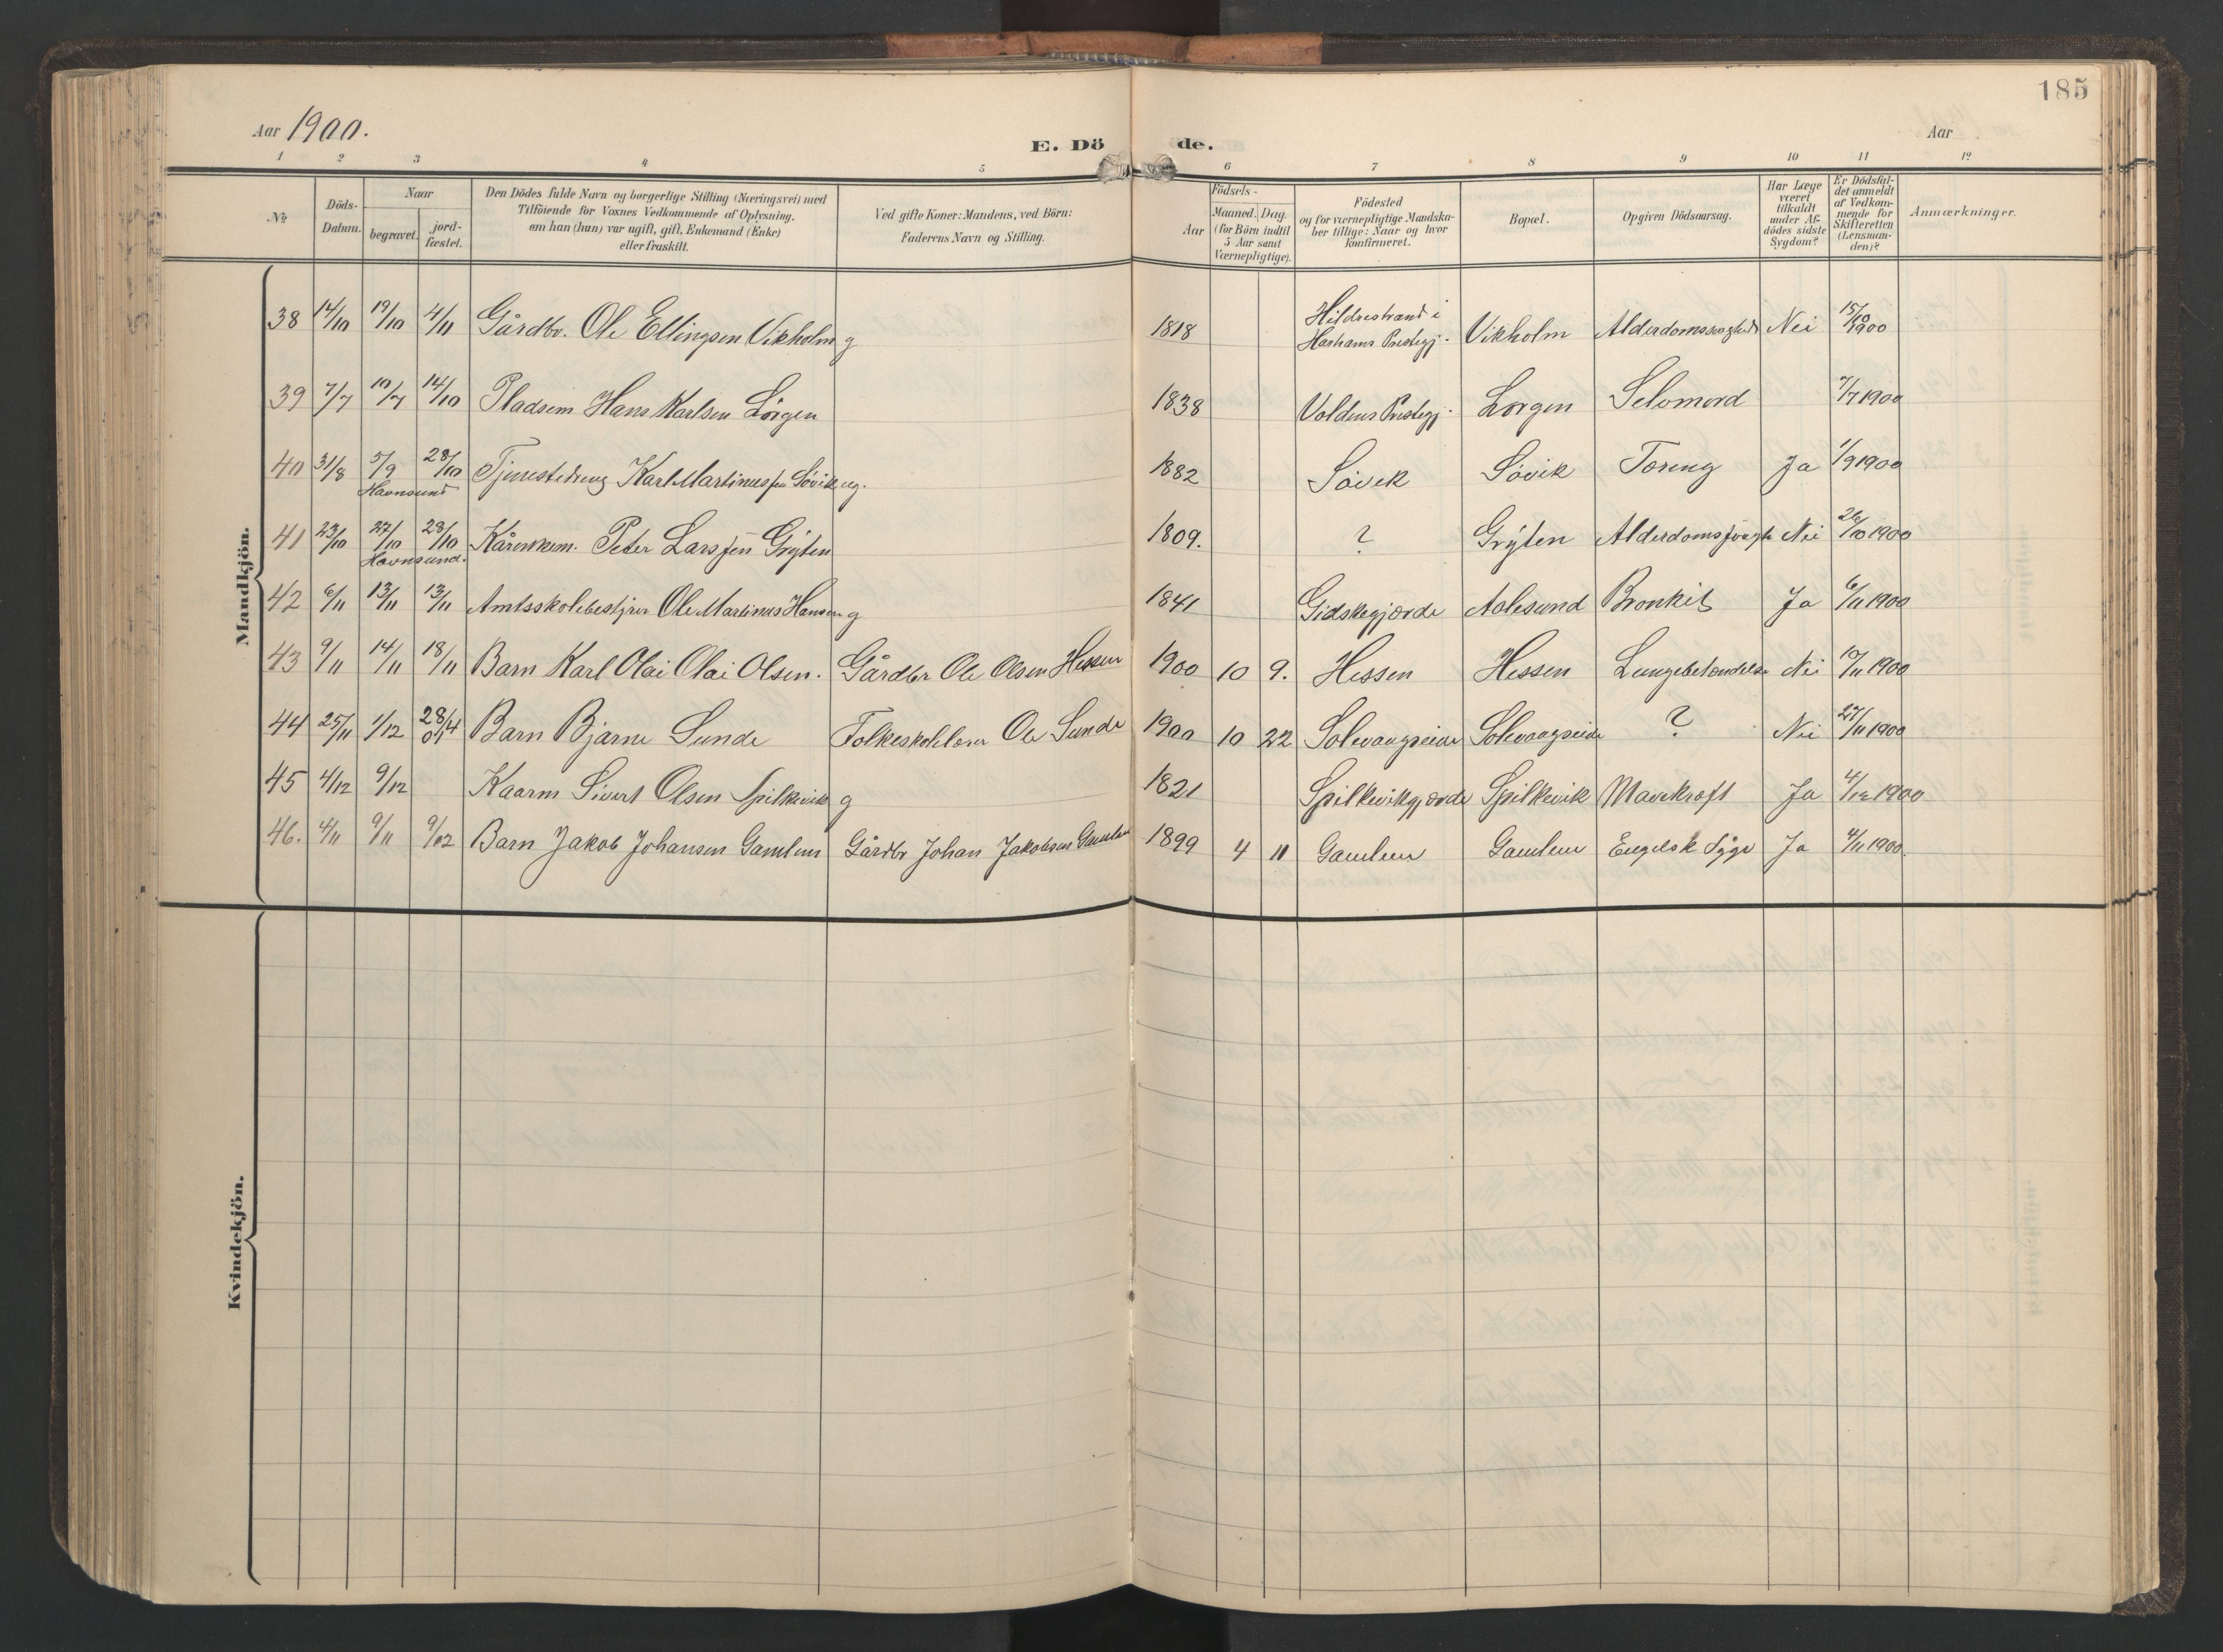 185
Aar 1900.
E. Dö de.
Aar
1 2 3 4 5 6 7 8 9 10 11 12
№
Döds-
Datum.
Naar
begravet.
jord-
fæstet.
Den Dödes fulde Navn og borgerlige Stilling (Næringsvei) med
Tilföiende for Voxnes Vedkommende af Oplysning,
om han (hun) var ugift, gift, Enkemand (Enke)
eller fraskilt.
Ved gifte Koner: Mandens, ved Börn:
Faderens Navn og Stilling.
Födsels-
Aar
Maaned. Dag.
(for Börn indtil
5 Aar samt
Værnepligtige).
Födested
og for værnepligtige Mandska-
ber tillige: Naar og hvor
konfirmeret.
Bopæl.
Opgiven Dödsaarsag.
Har Læge
været
tilkaldt
under Af-
dödes sidste
Sygdom?
Er Dödsfal-
det anmeldt
af Vedkom-
mende for
Skifteretten
(Lensman-
den)?
Anmærkninger.
Mandkjön.
38 14/10 19/10 4/11 Gårdbr. Ole Ellingsen Vikholm g 1818 Hildrestrand i Harhams Prestegj. Vikholm Nei 15/10 1900
39 7/7 10/7 14/10 Pladsem Hans Karlsen Lörgen 1838 Voldens Prestegj. Lorgen Selvmord 7/7 1900
40 31/8 5/9 28/10 Tjenestedreng Karl Martinussen Sövik ug. 1882 Sövik Sövik Toring Ja 1/9 1900
Havnsund
41 23/10 27/10 28/10 Peter Larssen Grÿten 1809. ? Grÿten Nei 26/10 1900
Havnsund.
42 6/11 13/11 13/11 Amtsskolebestyrer Ole Martinus Hansen g 1841 Gidskegjærde Aalesund Bronkit Ja 6/11 1900
43 9/11 14/11 18/11 Barn Karl Olai Olai Olsen. Gårdbr Ole Olsen Hessen 1900 10 9. Hessen Hessen Lungebetændelse Nei 10/11 1900
44 25/11 1/12 28/4 01 Barn Bjarne Sunde Folkeskolelærer Ole Sunde 1900 10 22 Solevaagseide Solevaagseide ? Nei 27/11 1900
45 4/12 9/12 Kaarm Sivert Olsen Spilkevik g 1821 Spilkevikgjærde Spilkevik Mavekræft Ja 4/12 1900
46. 4/11 9/11 9/02 Barn Jakob Johansen Gamlem Gårdbr Johan Jakobsen Gamlem 1899 4 11 Gamlem Gamlem Engelsk Syge Ja 4/11 1900.
Kvindekjön.